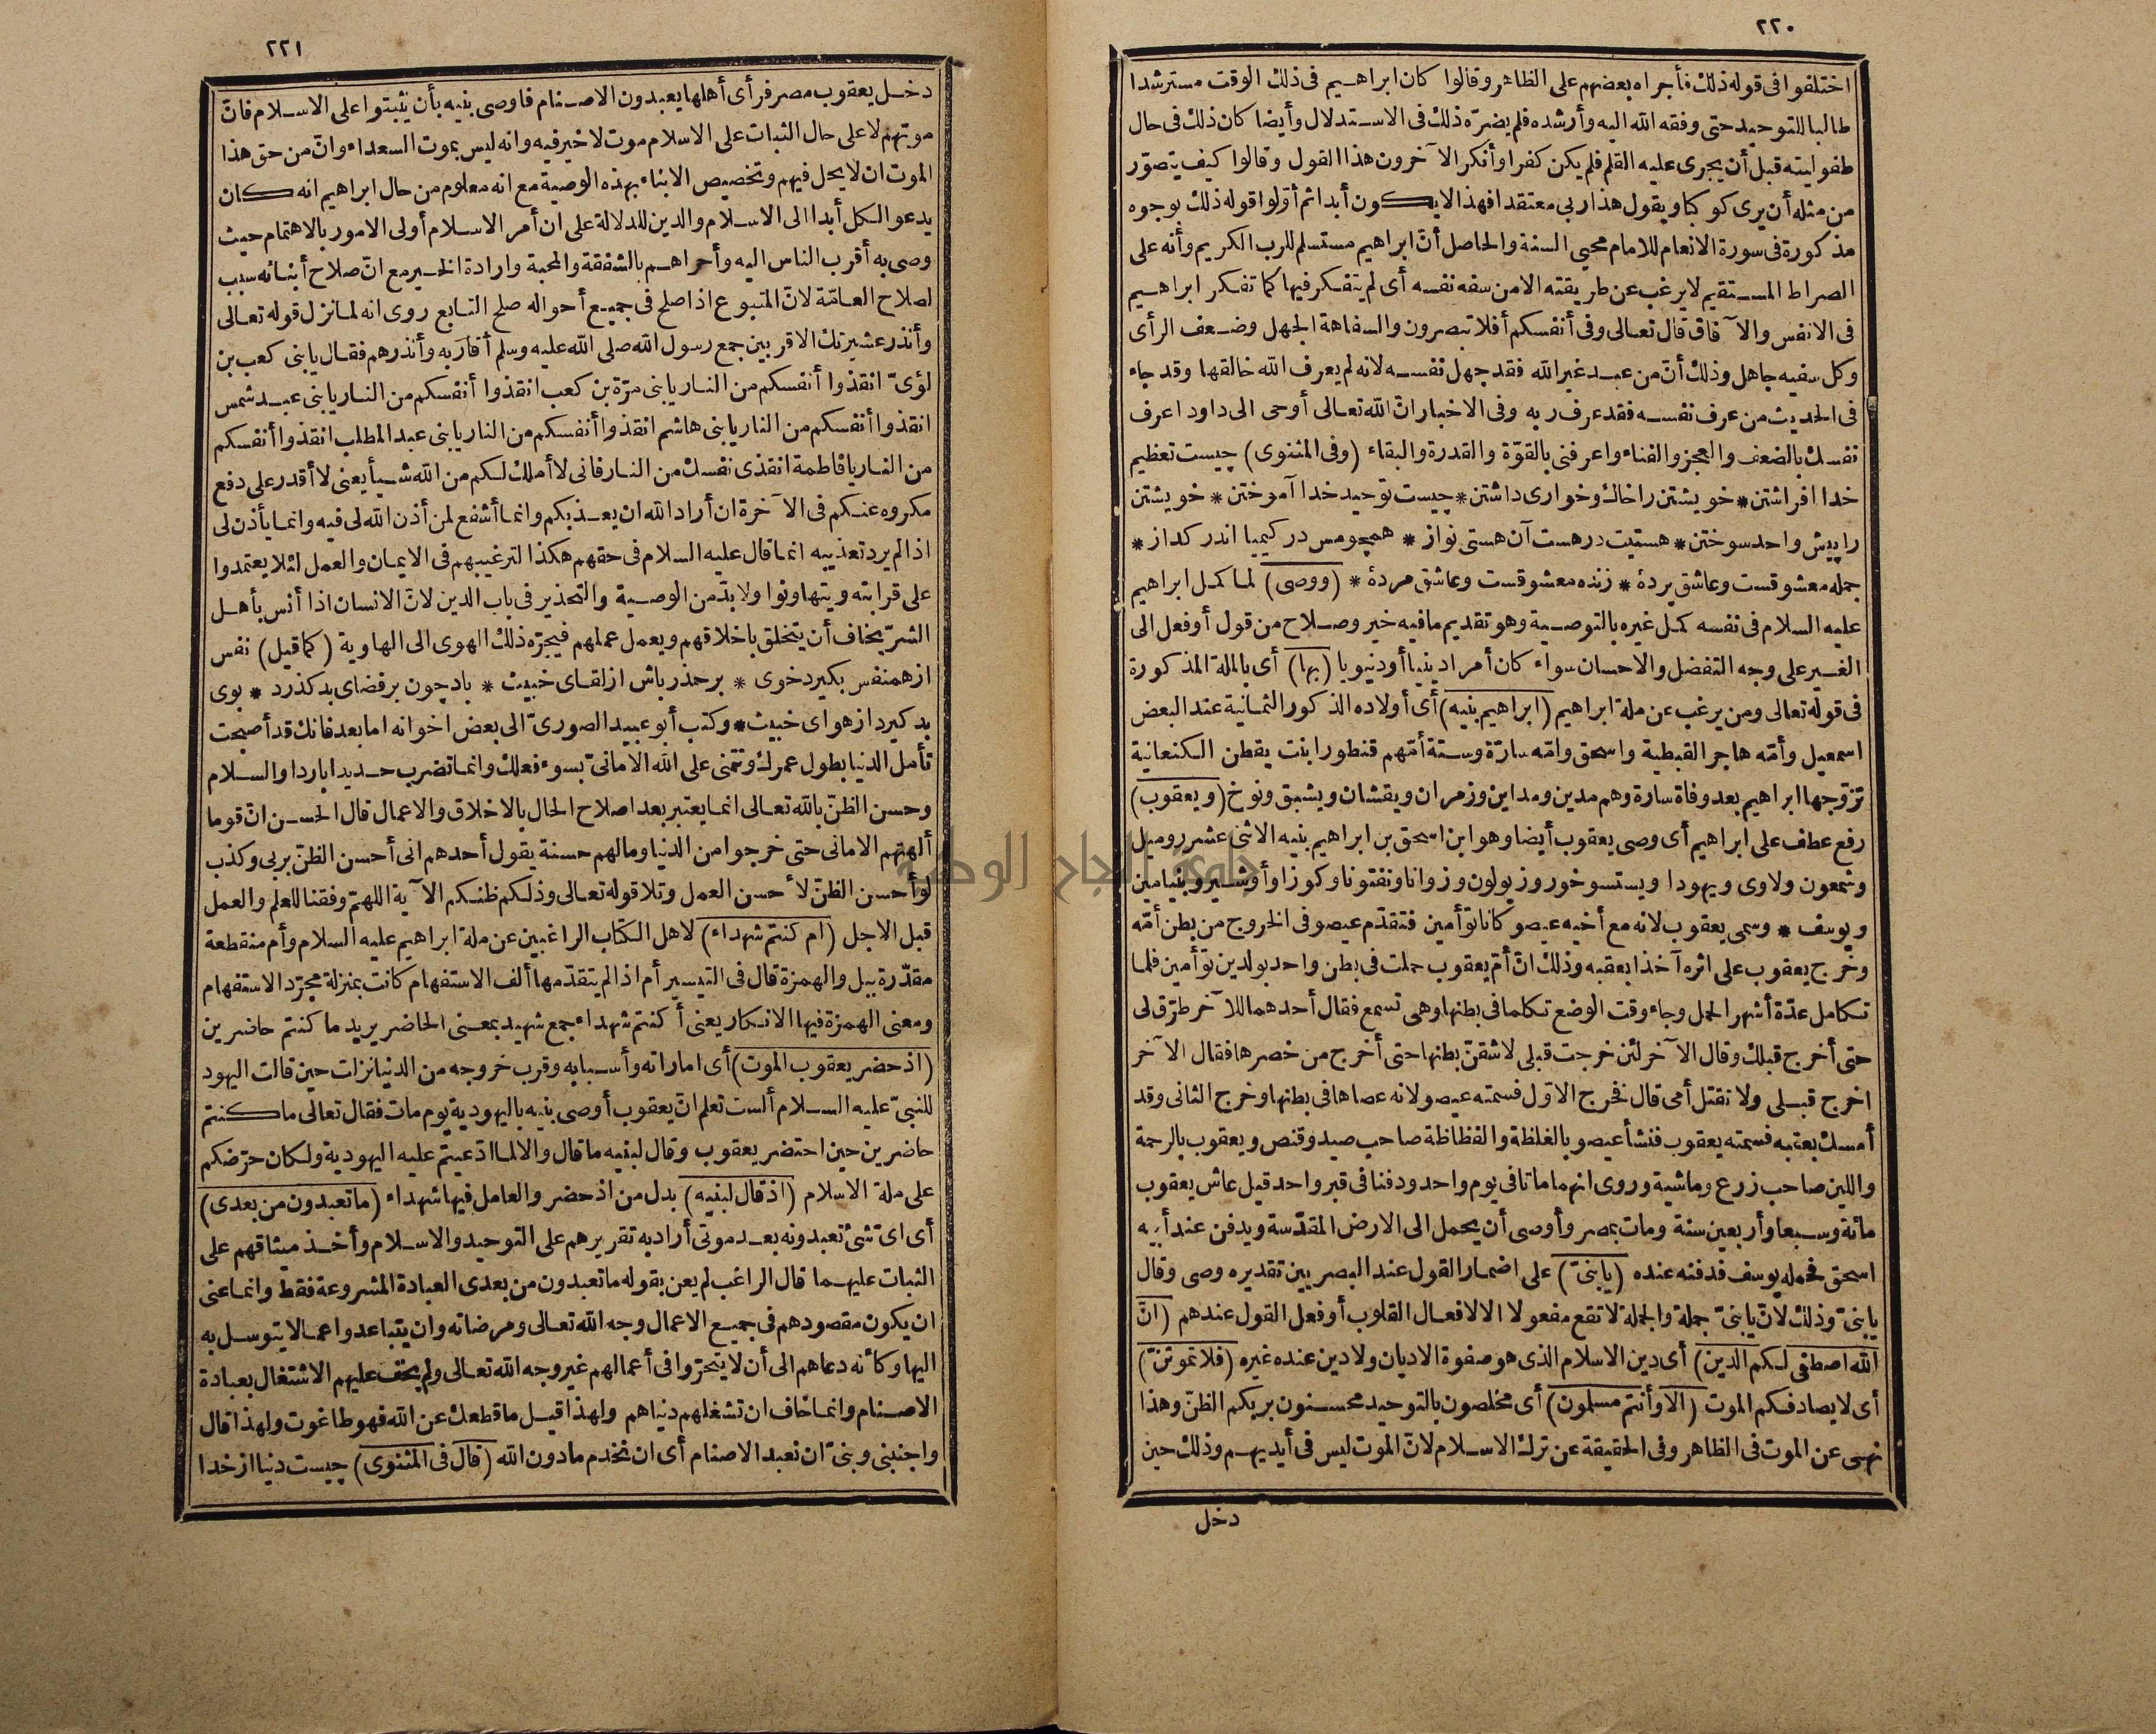 ٢٢٠
اختلفوا فى قوله ذلك فأجراه بعضهم على الظاهر وقالوا كان ابراهيم فى ذلك الوقت مسترشدا
طالبا للتوحيد حتى وفقه الله اليه وأرشده فلم يضرّه ذلك فى الاستدلال وأيضا كان ذلك فى حال
طفوليته قبل أن يجرى عليه القلم فلم يكن كفرا وأنكر الآخرون هذا القول وقالوا كيف يتصوّر
من مثله أن يرى كوكبا ويقول هذا ربى معتقدا فهذا لا يكون أبدا ثم أوّلوا قوله ذلك بوجوه
مذكورة فى سورة الانعام للامام محيى السنة والحاصل أنّ ابراهيم مستسلم للرب الكريم وأنه على
الصراط المستقيم لا يرغب عن طريقته الا من سفه نفسه أى لم يتفكر فيها كما تفكر ابراهيم
فى الانفس والآفاق قال تعالى وفى أنفسكم أفلا تبصرون والسفاهة الجهل وضعف الرأى
وكل سفيه جاهل وذلك أنّ من عبد غير الله فقد جهل نفسه لانه لم يعرف الله خالقها وقد جاء
فى الحديث من عرف نفسه فقد عرف ربه وفى الاخبار انّ الله تعالى أوحى الى داود اعرف
نفسك بالضعف والعجز والفناء واعرفنى بالقوّة والقدرة والبقاء (وفى المثنوى) چيست تعظيم
خدا افراشتن * خويشتن را خاك وخوارى داشتن * چيست توحيد خدا آموختن * خويشتن
را پيش واحد سوختن * هستيت در هست آن هستى نواز * همچو مس در كيميا اندر كداز *
جمله معشوقست وعاشق پردۀ * زنده معشوقست وعاشق مردۀ * (ووصى) لما كمل ابراهيم
عليه السلام فى نفسه كمل غيره بالتوصية وهو تقديم ما فيه خير وصلاح من قول أو فعل الى
الغير على وجه التفضل والاحسان سواء كان أمرا دينيا أو دنيويا (بها) أى بالملة المذكورة
فى قوله تعالى ومن يرغب عن ملة ابراهيم (ابراهيم بنيه) أى أولاده الذكور الثمانية عند البعض
اسمعيل وأمّه هاجر القبطية واسحق وامّه سارّة وستة أمّهم قنطورا بنت يقطن الكنعانية
تزوّجها ابراهيم بعد وفاة سارة وهم مدين ومداين وزمران ويقشان ويشبق ونوخ (ويعقوب)
رفع عطف على ابراهيم أى وصى يعقوب أيضا وهو ابن اسحق بن ابراهيم بنيه الاثنى عشر روميل
وشمعون ولاوى ويهودا ويستسوخور وزبولون وزوانا ونفتونا وكوزا وأوشير وبنيامين
ويوسف * وسمى يعقوب لانه مع أخيه عيصو كانا توأمين فتقدّم عيصو فى الخروج من بطن أمّه
وخرج يعقوب على اثره آخذا بعقبه وذلك انّ أمّ يعقوب حملت فى بطن واحد بولدين توأمين فلما
تكامل عدّة أشهر الحمل وجاء وقت الوضع تكلما فى بطنها وهى تسمع فقال أحدهما للآخر طرّق لى
حتى أخرج قبلك وقال الآخر لئن خرجت قبلى لاشقنّ بطنها حتى أخرج من خصرها فقال الآخر
اخرج قبلى ولا تقتل أمى قال فخرج الاوّل فسمته عيصو لانه عصاها فى بطنها وخرج الثانى وقد
أمسك بعقبه فسمته يعقوب فنشأ عيصو بالغلظة والفظاظة صاحب صيد وقنص ويعقوب بالرحمة
واللين صاحب زرع وماشية وروى انهما ماتا فى يوم واحد ودفنا فى قبر واحد قيل عاش يعقوب
مائة وسبعا وأربعين سنة ومات بمصر وأوصى أن يحمل الى الارض المقدّسة ويدفن عند أبيه
اسحق فحمله يوسف فدفنه عنده (يابنىّ) على اضمار القول عند البصريين تقديره وصى وقال
يابنىّ وذلك لانّ يابنىّ جملة والجملة لا تقع مفعولا الا لافعال القلوب أو فعل القول عندهم (انّ
الله اصطفى لكم الدين) أى دين الاسلام الذى هو صفوة الاديان ولا دين عنده غيره (فلا تموتنّ)
أى لا يصادفكم الموت (الا وأنتم مسلمون) أى مخلصون بالتوحيد محسنون بربكم الظنّ وهذا
نهى عن الموت فى الظاهر وفى الحقيقة عن ترك الاسلام لانّ الموت ليس فى أيديهم وذلك حين
دخل
٢٢١
دخل يعقوب مصر فرأى أهلها يعبدون الاصنام فاوصى بنيه بأن يثبتوا على الاسلام فانّ
موتهم لا على حال الثبات على الاسلام موت لا خير فيه وانه ليس بموت السعداء وانّ من حق هذا
الموت ان لا يحل فيهم وتخصيص الابناء بهذه الوصية مع انه معلوم من حال ابراهيم انه كان
يدعو الكل أبدا الى الاسلام والدين للدلالة على ان أمر الاسلام أولى الامور بالاهتمام حيث
وصى به أقرب الناس اليه وأحراهم بالشفقة والمحبة وارادة الخير مع انّ صلاح أبنائه سبب
اصلاح العامّة لانّ المتبوع اذا صلح فى جميع أحواله صلح التابع روى انه لما نزل قوله تعالى
وأنذر عشيرتك الاقربين جمع رسول الله صلى الله عليه وسلم أقاربه وأنذرهم فقال يا بنى كعب بن
لؤىّ انقذوا أنفسكم من النار يا بنى مرّة بن كعب انقذوا أنفسكم من النار يا بنى عبد شمس
انقذوا أنفسكم من النار يا بنى هاشم انقذوا أنفسكم من النار يا بنى عبد المطلب انقذوا أنفسكم
من النار يا فاطمة انقذى نفسك من النار فانى لا أملك لكم من الله شيأ يعنى لا أقدر على دفع
مكروه عنكم فى الآخرة ان أراد الله ان يعذبكم وانما أشفع لمن أذن الله لى فيه وانما يأذن لى
اذا لم يرد تعذيبه انما قال عليه السلام فى حقهم هكذا لترغيبهم فى الايمان والعمل لئلا يعتمدوا
على قرابته ويتهاونوا ولا بدّ من الوصية والتحذير فى باب الدين لانّ الانسان اذا أنس بأهل
الشرّ يخاف أن يتخلق باخلاقهم ويعمل عملهم فيجرّه ذلك الهوى الى الهاوية (كما قيل) نفس
از همنفس بكيرد خوى * بر حذر باش از لقاى خبيث * باد چون بر فضاى بد كذرد * بوى
بد كيرد از هواى خبيث * وكتب أبو عبيد الصورىّ الى بعض اخوانه اما بعد فانك قد أصبحت
تأمل الدنيا بطول عمرك وتتمنى على الله الامانىّ بسوء فعلك وانما تضرب حديدا باردا والسلام
وحسن الظنّ بالله تعالى انما يعتبر بعد اصلاح الحال بالاخلاق والاعمال قال الحسن انّ قوما
ألهتهم الامانى حتى خرجوا من الدنيا وما لهم حسنة يقول أحدهم انى أحسن الظنّ بربى وكذب
لو أحسن الظنّ لأحسن العمل وتلا قوله تعالى وذلكم ظنكم الآية اللهمّ وفقنا للعلم والعمل
قبل الاجل (ام كنتم شهداء) لاهل الكتاب الراغبين عن ملة ابراهيم عليه السلام وأم منقطعة
مقدّرة ببل والهمزة قال فى التيسير أم اذا لم يتقدّمها ألف الاستفهام كانت بمنزلة مجرّد الاستفهام
ومعنى الهمزة فيها الانكار يعنى أكنتم شهداء جمع شهيد بمعنى الحاضر يريد ما كنتم حاضرين
(اذ حضر يعقوب الموت) أى اماراته وأسبابه وقرب خروجه من الدنيا نزلت حين قالت اليهود
للنبىّ عليه السلام ألست تعلم انّ يعقوب أوصى بنيه باليهودية يوم مات فقال تعالى ما كنتم
حاضرين حين احتضر يعقوب وقال لبنيه ما قال والا لما ادّعيتم عليه اليهودية ولكان حرّضكم
على ملة الاسلام (اذ قال لبنيه) بدل من اذ حضر والعامل فيها شهداء (ما تعبدون من بعدى)
أى اىّ شئ تعبدونه بعد موتى أراد به تقريرهم على التوحيد والاسلام وأخذ ميثاقهم على
الثبات عليهما قال الراغب لم يعن بقوله ما تعبدون من بعدى العبادة المشروعة فقط وانما عنى
ان يكون مقصودهم فى جميع الاعمال وجه الله تعالى ومرضاته وان يتباعدوا عما لا يتوسل به
اليها وكأنه دعاهم الى أن لا يتحرّوا فى أعمالهم غير وجه الله تعالى ولم يخف عليهم الاشتغال بعبادة
الاصنام وانما خاف ان تشغلهم دنياهم ولهذا قيل ما قطعك عن الله فهو طاغوت ولهذا قال
واجنبنى وبنىّ ان نعبد الاصنام أى ان نخدم ما دون الله (قال فى المثنوى) چيست دنيا از خدا